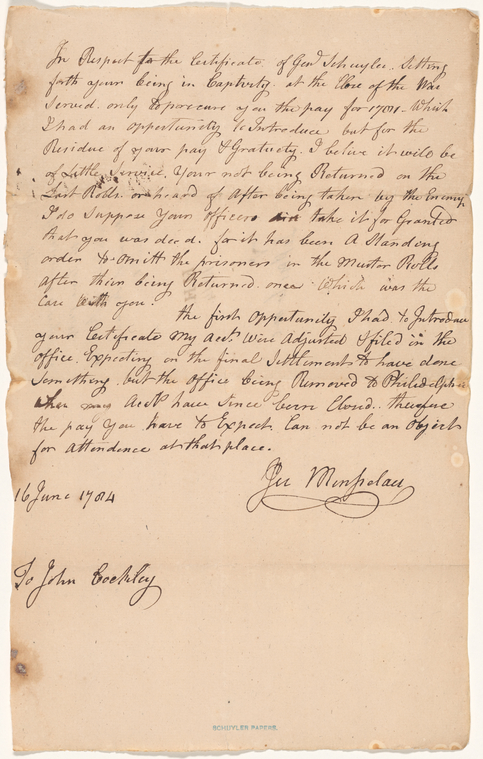 In Respect to the Certificate of Genl Schuyler Setting
forth your being in Captivity at the Close of the War
Served only to procure you the pay for 1781. Which
I had an opportunity to Introduce but for the
Residue of your pay & Gratuety. I beleve it will be
of Little Service. Your not being Returned on the
Last Rolls or heard of After being taken by the Enemy
I do Suppose Your officers take it for Granted
that you was dead. for it has been A Standing
order to omitt the prisoners in the Muster Rolls
After them being Returned once Which was the
Case With you.
the first Opportunity I had to Introduce
your Certificate My Accts Were Adjusted & filed in the
office. Expecting on the final Settlements to have done
Something but the Office being Removed to Philidelphia
Accts have Since been Closed. therefore
the pay You have to Expect Can not be an Object
for attendence at that place.
16 June 1784
To John
SCHUYLER PAPERS.